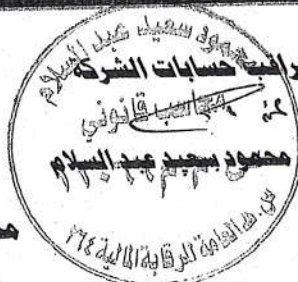 محمود سعيد عبد السلام
مراقب حسابات الشركة
محاسب قانوني
محمود سعيد عبد السلام
العامة للرقابة المالية ٢٦٤